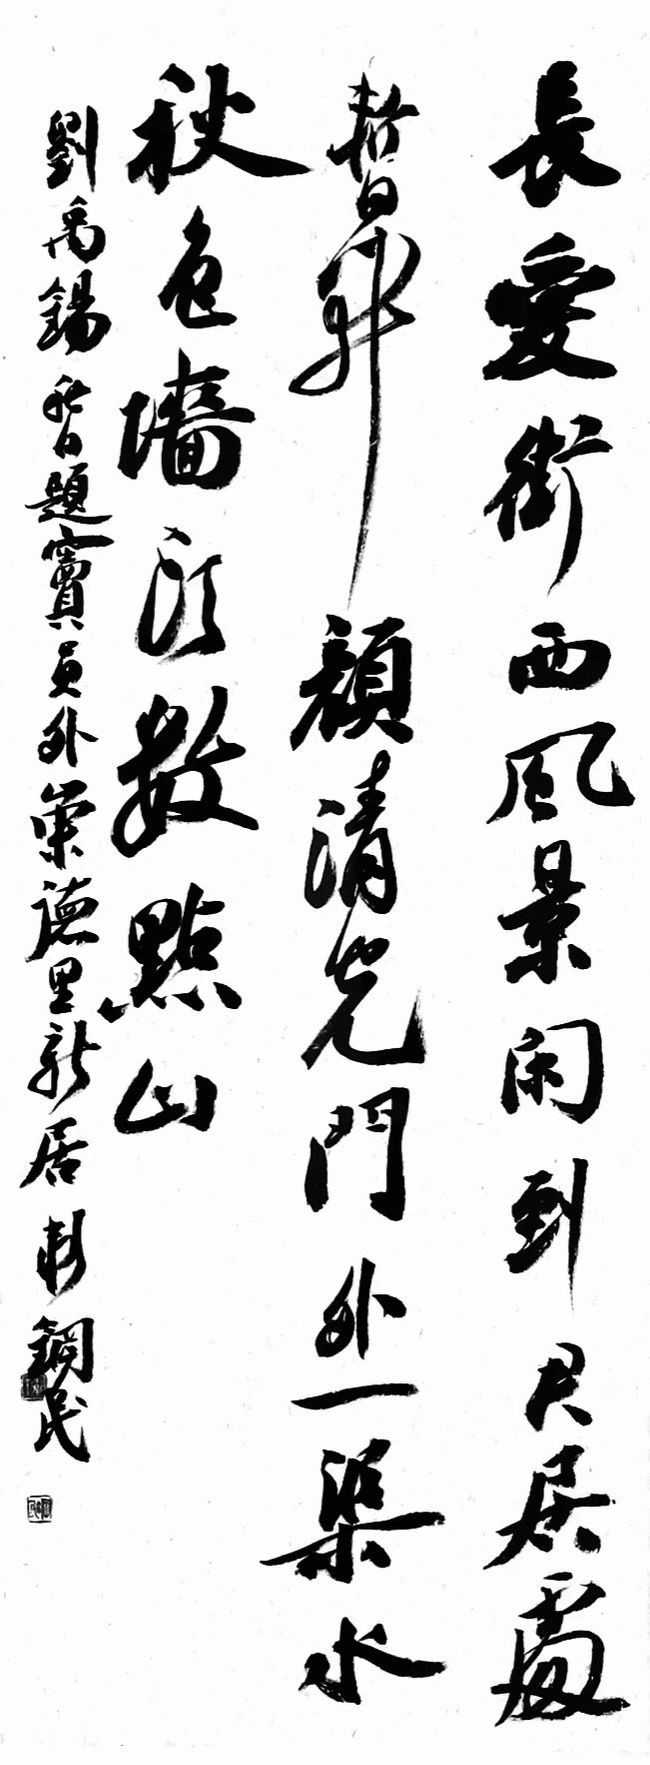 長愛街西風景閑到君居處
暫開顏清光門外一渠水
秋色墻頭數點山
劉禹錫秋日題竇員外崇德里新居 鋼民